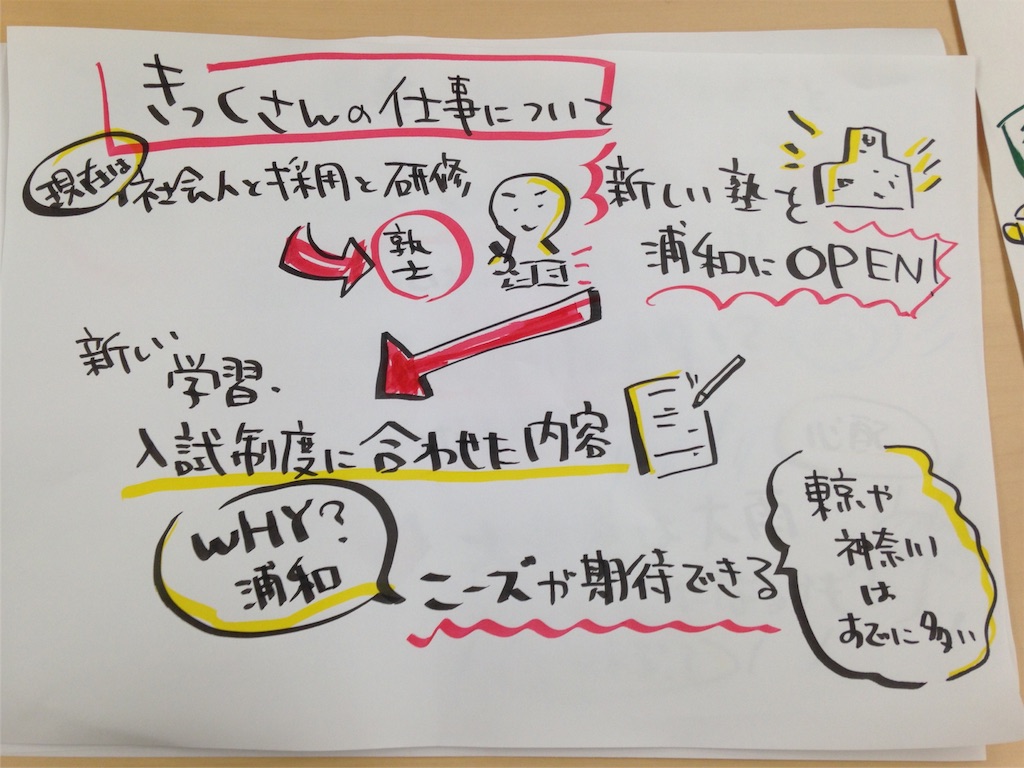 きっくさんの仕事について
現在は
社会人と採用と研修
新しい塾を
浦和にOPEN!
新しい
学習・
入試制度に合わせた内容
WHY?
浦和
ニーズが期待できる
東京や
神奈川
は
すでに多い